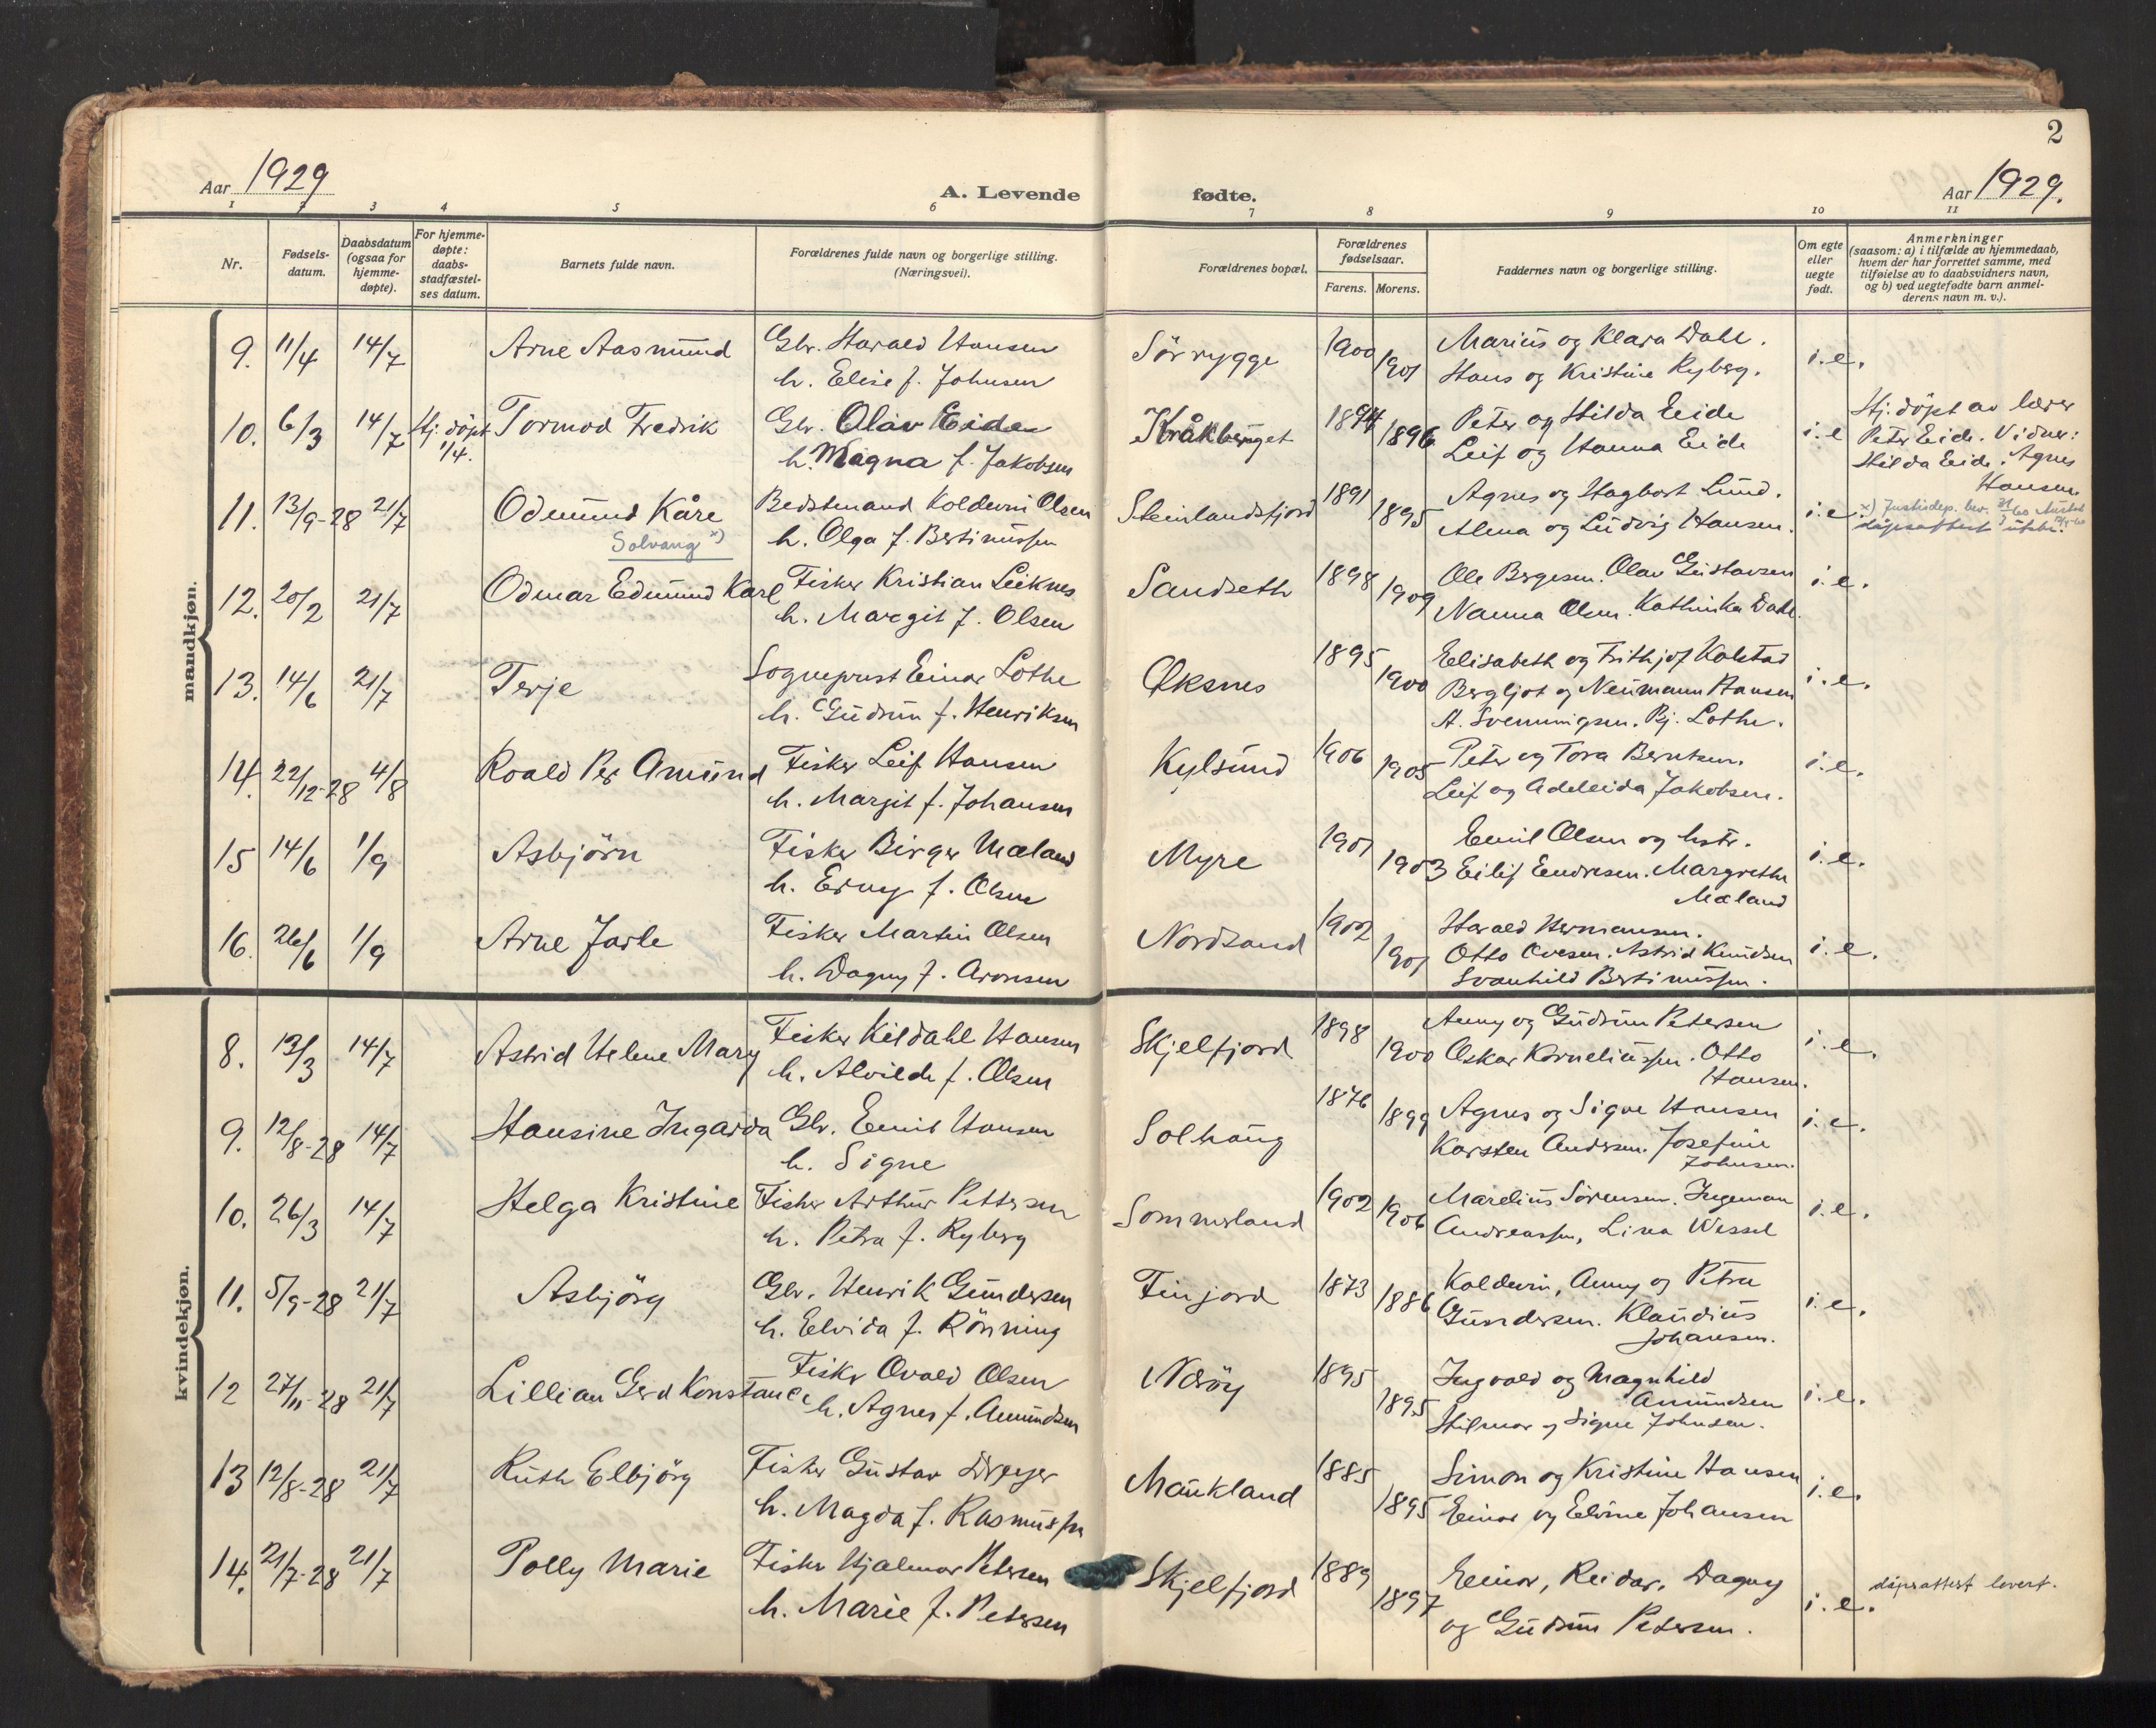 2
Aar 1929
A. Levende fødte.
Aar 1929.
1 2 3 4 5 6 7 8 9 10 11
Nr.
Fødsels-
datum.
Daabsdatum
(ogsaa for
hjemme-
døpte).
For hjemme-
døpte:
daabs-
stadfæstel-
ses datum.
Barnets fulde navn.
Forældrenes fulde navn og borgerlige stilling.
(Næringsvei).
Forældrenes bopæl.
Forældrenes
fødselsaar.
Farens. Morens.
Faddernes navn og borgerlige stilling.
Om egte
eller
uegte
født.
Anmerkninger
(saasom: a) i tilfælde av hjemmedaab,
hvem der har forrettet samme, med
tilføielse av to daabsvidners navn,
og b) ved uegtefødte barn anmel-
derens navn m. v.).
mandkjøn.
9. 11/4 14/7 Arne Aasmund Gbr. Harald Hansen Sörrygge 1900 1901 Marius og Klara Dahl. i.e.
h. Elise f. Johnsen Hans og Kristine Ryberg.
10. 6/3 14/7 Hj. döpt Tormod Fredrik Gbr. Olav Eide Kråkberget 1894 1896 Peter og Hilda Eide i.e Hj. döpt av lærer
1/4. h. Magna f. Jakobsen Leif og Hanna Eide Peter Eide. Vidner:
Hilda Eide. Agnes
Hansen
11. 13/9-28 21/7 Odmund Kåre Bedstemand Koldevin Olsen Steinlandsfjord 1891 1895 Agnes og Hagbart Lund. i.e. x) Justisdep. bev.
Solvang x) h. Olga f. Bertinussen Alma og Ludvig Hansen. dåpsattest utskr.
12. 20/2 21/7 Odmar Edmund Karl Fisker Kristian Leiknes Sandseth 1898 1909 Ole Borgesen. Olav Gustavsen i.e.
h. Margit f. Olsen Nanna Olsen. Kathinka Dahl.
13. 14/6 21/7 Terje Sogneprest Einar Lothe Öksnes 1895 1900 Elisabeth og Frithjof Kolstad i.e.
h. Gudrun f. Henriksen Bergljot og Neumann Hansen
A. Svenningsen. Bj. Lothe.
14. 22/12-28 4/8 Roald Per Amund Fisker Leif Hansen Kylsund 1906 1905 Peter og Tora Berntsen. i.e.
h. Margit f. Johansen Leif og Adeleida Jakobsen.
15 14/6 1/9 Asbjörn Fisker Birger Mæland Myre 1901 1903 Emil Olsen og hstr. i.e.
h. Erny f. Olsen Eilif Endresen. Margrethe
Mæland
16. 26/6 1/9 Arne Jarle Fisker Martin Olsen Nordsand 1902 1901 Harald Hermansen. i.e.
h. Dagny f. Aronsen Otto Ovesen. Astrid Knudsen
Svanhild Bertinussen.
kvindekjøn.
8. 13/3 14/7 Astrid Helene Mary Fisker Kildahl Hansen Skjelfjord 1898 1900 Anny og Gudrun Petersen i.e.
h. Alvilde f. Olsen Oskar Korneliussen. Otto
Hansen.
9. 12/8-28 14/7 Hansine Ingarda Gbr. Emil Hansen Solhaug 1876 1899 Agnes og Signe Hansen i.e.
h. Signe Karsten Andersen. Josefine
Johnsen.
10. 26/3 14/7 Helga Kristine Fisker Arthur Pettersen Sommerland 1902 1906 Marelius Sörensen. Ingeman i.e.
h. Petra f. Ryberg Andreassen, Lina Wessel
11. 5/9-28 21/7 Asbjörg Gbr. Henrik Gundersen Finjord 1873 1886 Koldevin, Anny og Petra i.e.
h. Elvida f. Rönning Gundersen. Klaudius
Johansen.
12 27/11-28 21/7 Lillian Gerd Konstance Fisker Ovald Olsen Næröy 1895 1895 Ingvald og Magnhild i.e.
h. Agnes f. Amundsen Amundsen
Hilmar og Signe Johnsen.
13 12/8-28 21/7 Ruth Elbjörg Fisker Gustav Dreyer Maukland 1885 1895 Simon og Kristine Hansen i.e.
h. Magda f. Rasmussen Einar og Elvine Johansen
14. 21/7-28 21/7 Polly Marie Fisker Hjalmar Petersen Skjelfjord 1889 1897 Einar, Reidar, Dagny i.e. dåpsattest levert.
h. Marie f. Petersen og Gudrun Petersen.